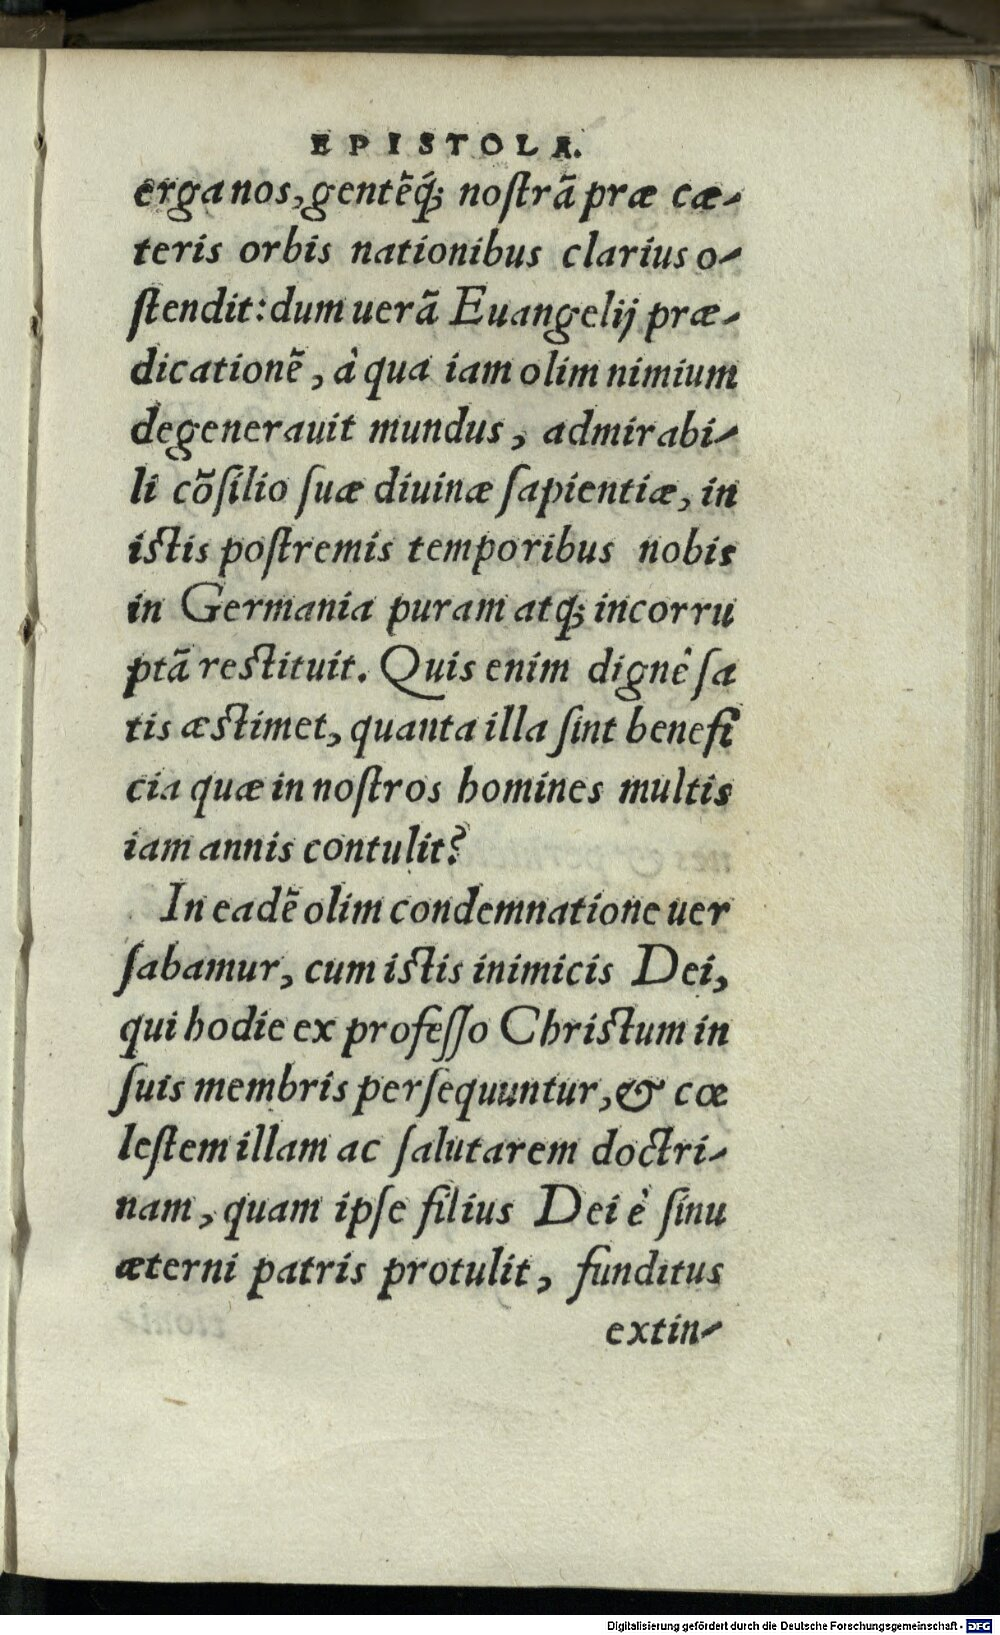 EPISTOLA.
erga nos, gentẽq́; noſtrã præ cæ-
teris orbis nationibus clarius o-
ſtendit: dum uerã Euangelij præ-
dicationẽ, à qua iam olim nimium
degenerauit mundus, admirabi-
li cõſilio ſuæ diuinæ ſapientiæ, in
istis poſtremis temporibus nobis
in Germania puram atq; incorru
ptã restituit. Quis enim dignè ſa
tis æstimet, quanta illa ſint benefi
cia quæ in noſtros homines multis
iam annis contulit?
In eadẽ olim condemnatione uer
ſabamur, cum istis inimicis Dei,
qui hodie ex profeſſo Christum in
ſuis membris perſequuntur, & cœ
leſtem illam ac ſalutarem doctri-
nam, quam ipſe filius Dei è ſinu
æterni patris protulit, funditus
extin-
Digitalisierung gefördert durch die Deutsche Forschungsgemeinschaft - DFG